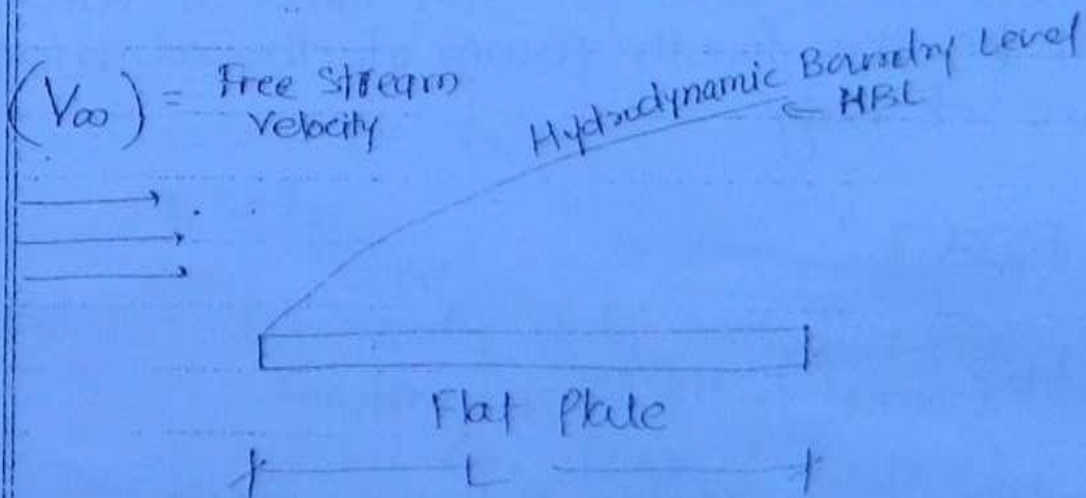 (V∞) = Free Stream
Velocity
Hydrodynamic Boundry Level
HBL
Flat Plate
L